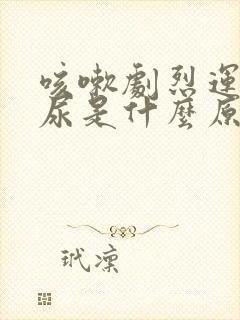 咳嗽劇烈運
尿是什麼原
玳凜